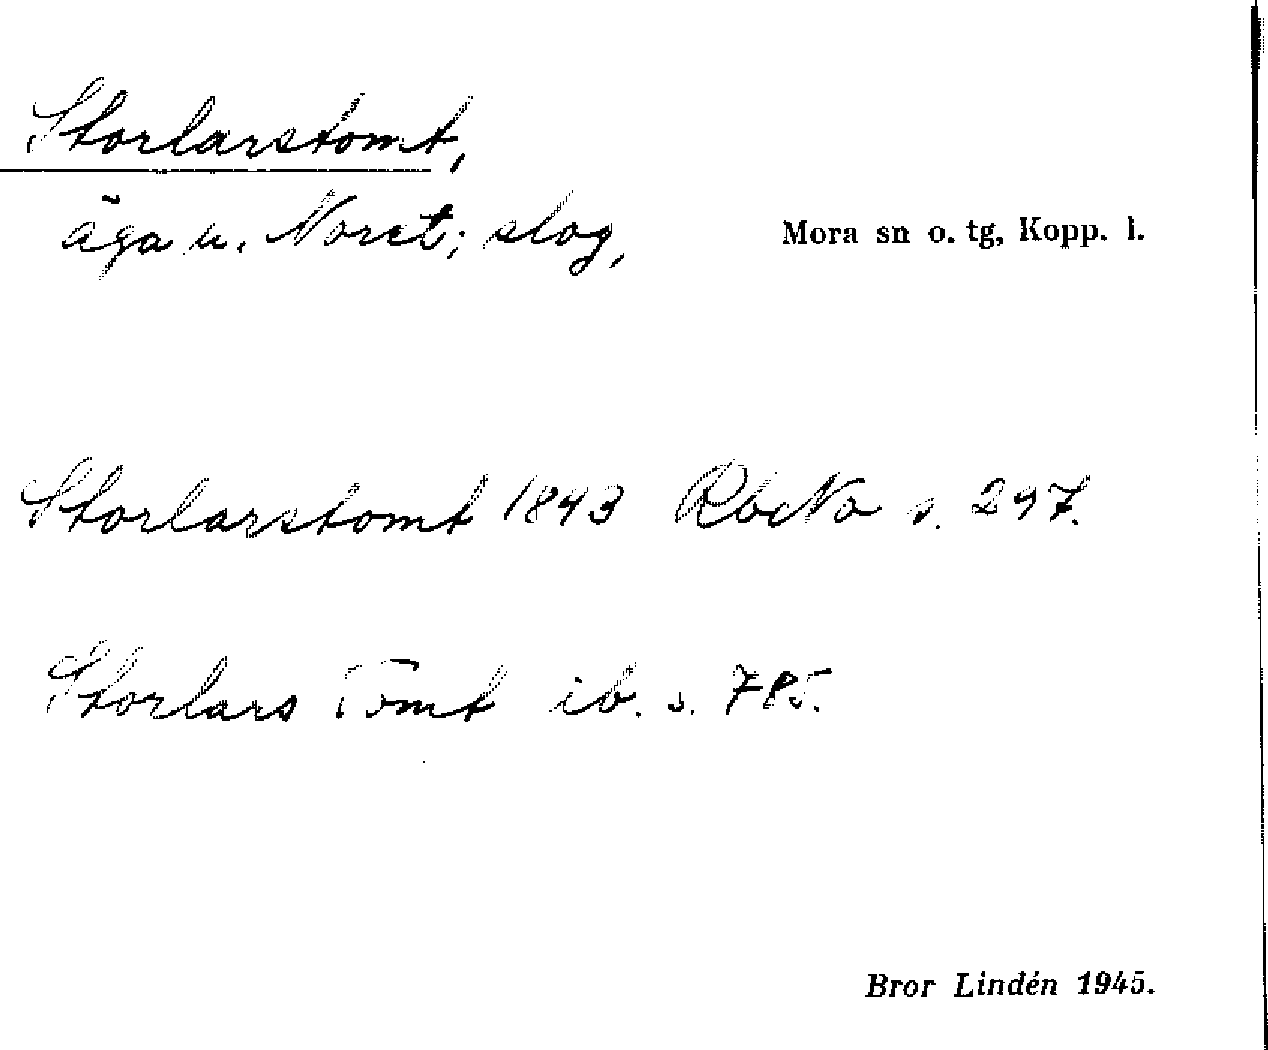 Storlarstomt,
äga u. Noret; slog,
Mora sn o. tg, Kopp. l.
Storlarstomt 1843 RbcNo s. 297.
Storlars Tomt ib. s. 785.
Bror Lindén 1945.